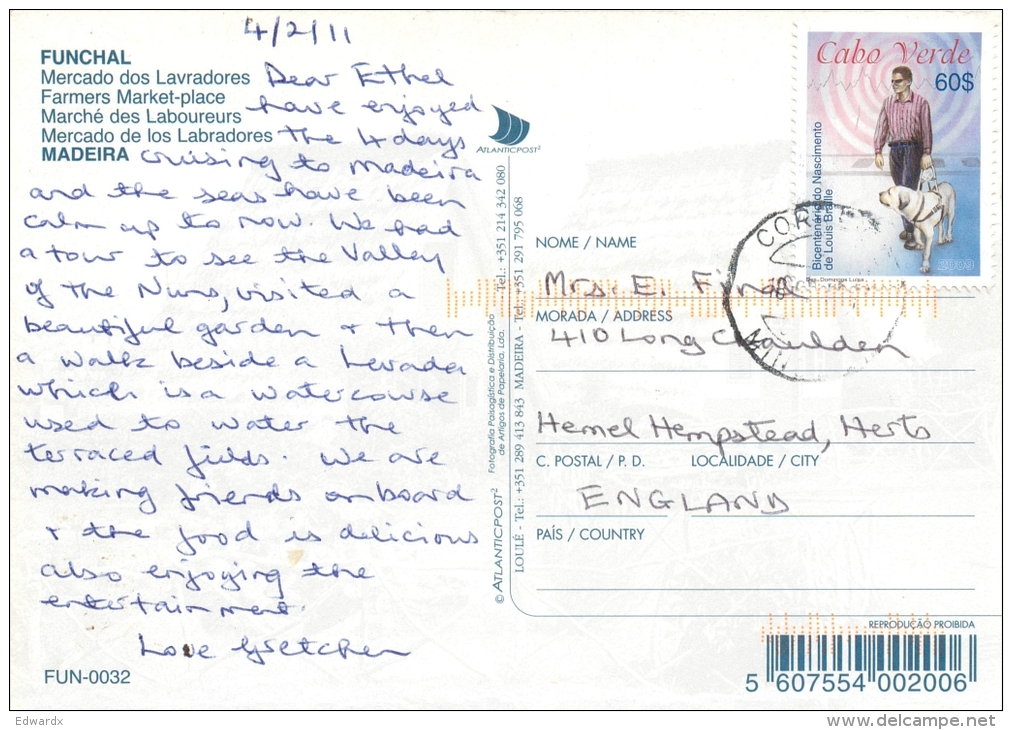 4/2/11
FUNCHAL
Mercado dos Lavradores
Farmers Market-place
Marché des Laboureurs
Mercado de los Labradores
MADEIRA
Dear Ethel
have enjoyed
the 4 days
cruising to Madeira
and the seas have been
calm up to now. We had
a tour to see the Valley
of the Nuns, visited a
beautiful garden + then
a walk beside a Levada
which is a watercourse
used to water the
terraced fields. We are
making friends onboard
+ the food is delicious
also enjoying the
entertainment.
Love Gretchen
FUN-0032
ATLANTICPOST²
© ATLANTICPOST²
Fotografia Paisagística e Distribuição
de Artigos de Papelaria, Lda.
LOULÉ - Tel.: +351 289 413 843 MADEIRA - Tel.: +351 291 795 068
Tel.: +351 214 342 080
Cabo Verde
60$
Bicentenário do Nascimento
de Louis Braille
2009
NOME / NAME
Mrs. E.
MORADA / ADDRESS
410 Long Chaulden
Hemel Hempstead, Herts
C. POSTAL / P. D.
LOCALIDADE / CITY
ENGLAND
PAÍS / COUNTRY
REPRODUÇÃO PROIBIDA
5 607554 002006
Edwardx
www.delcampe.net